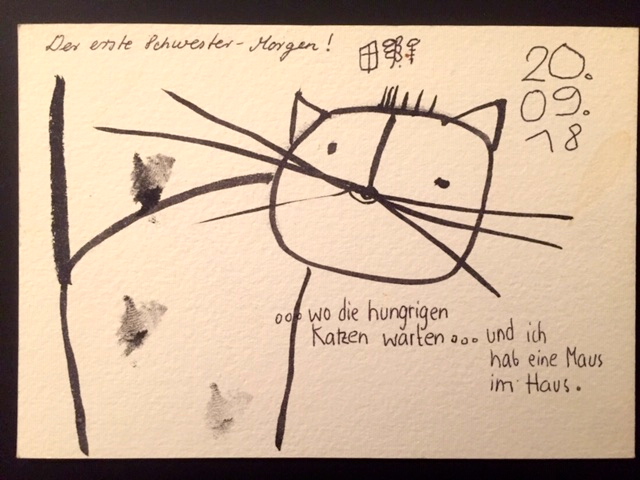 Der erste Schwester-Morgen!
20.
09.
18
...wo die hungrigen
Katzen warten... und ich
hab eine Maus
im Haus.